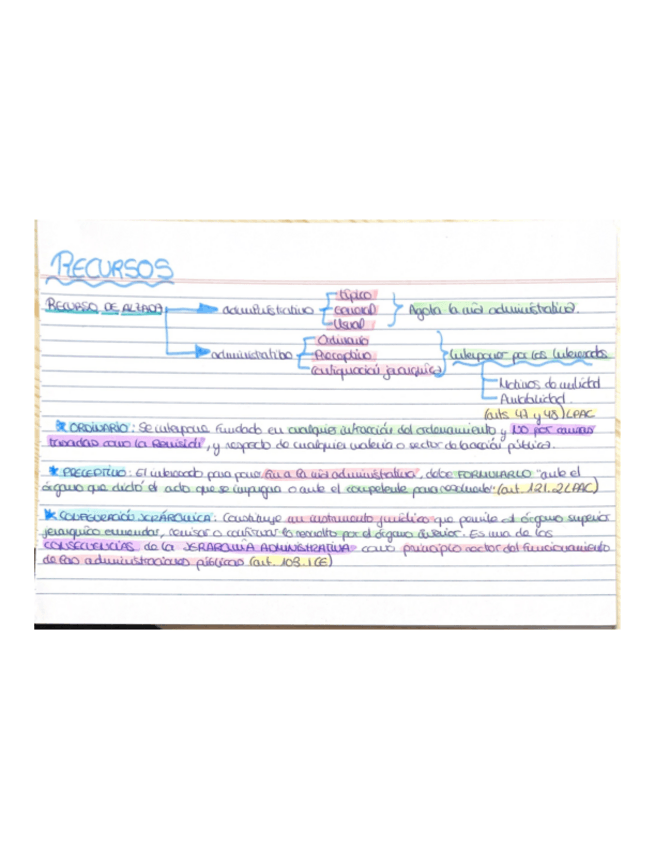 RECURSOS
RECURSO DE ALZADA
administrativo
típico
General
Usual
Agota la vía administrativa.
administrativo
Ordinario
Preceptivo
Configuración jerárquica
Interponer por los interesados
Motivos de nulidad
Anulabilidad
(arts 47 y 48) LPAC
* ORDINARIO: Se interpone fundado en cualquier infracción del ordenamiento y NO por causas
tasadas como la Revisión, y respecto de cualquier materia o sector de la acción pública.
* PRECEPTIVO: El interesado para poner fin a la vía administrativa, debe FORMULARLO "ante el
órgano que dictó el acto que se impugna o ante el competente para resolverlo" (art. 121.2 LPAC)
* CONFIGURACIÓ JERÁRQUICA: Constituye un instrumento jurídico que permite al órgano superior
jerárquico enmendar, revisar o confirmar lo resuelto por el órgano inferior. Es una de las
CONSECUENCIAS de la JERARQUÍA ADMINISTRATIVA como principio rector del funcionamiento
de las administraciones públicas (art. 103.1 CE)